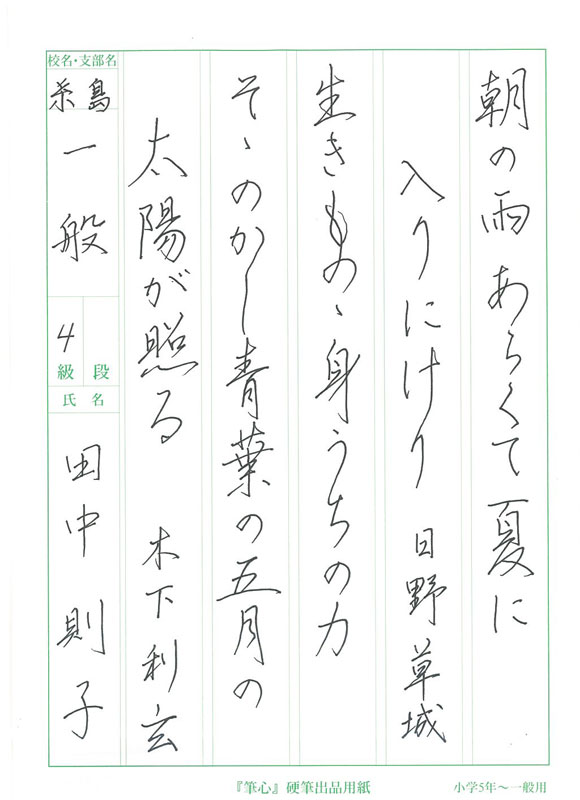 朝の雨あらくて夏に
入りにけり 日野草城
生きものゝ身うちの力
そゝのかし青葉の五月の
太陽が照る 木下利玄
校名・支部名
糸島
一般
4
級 段
氏名
田中則子
『筆心』硬筆出品用紙
小学5年～一般用